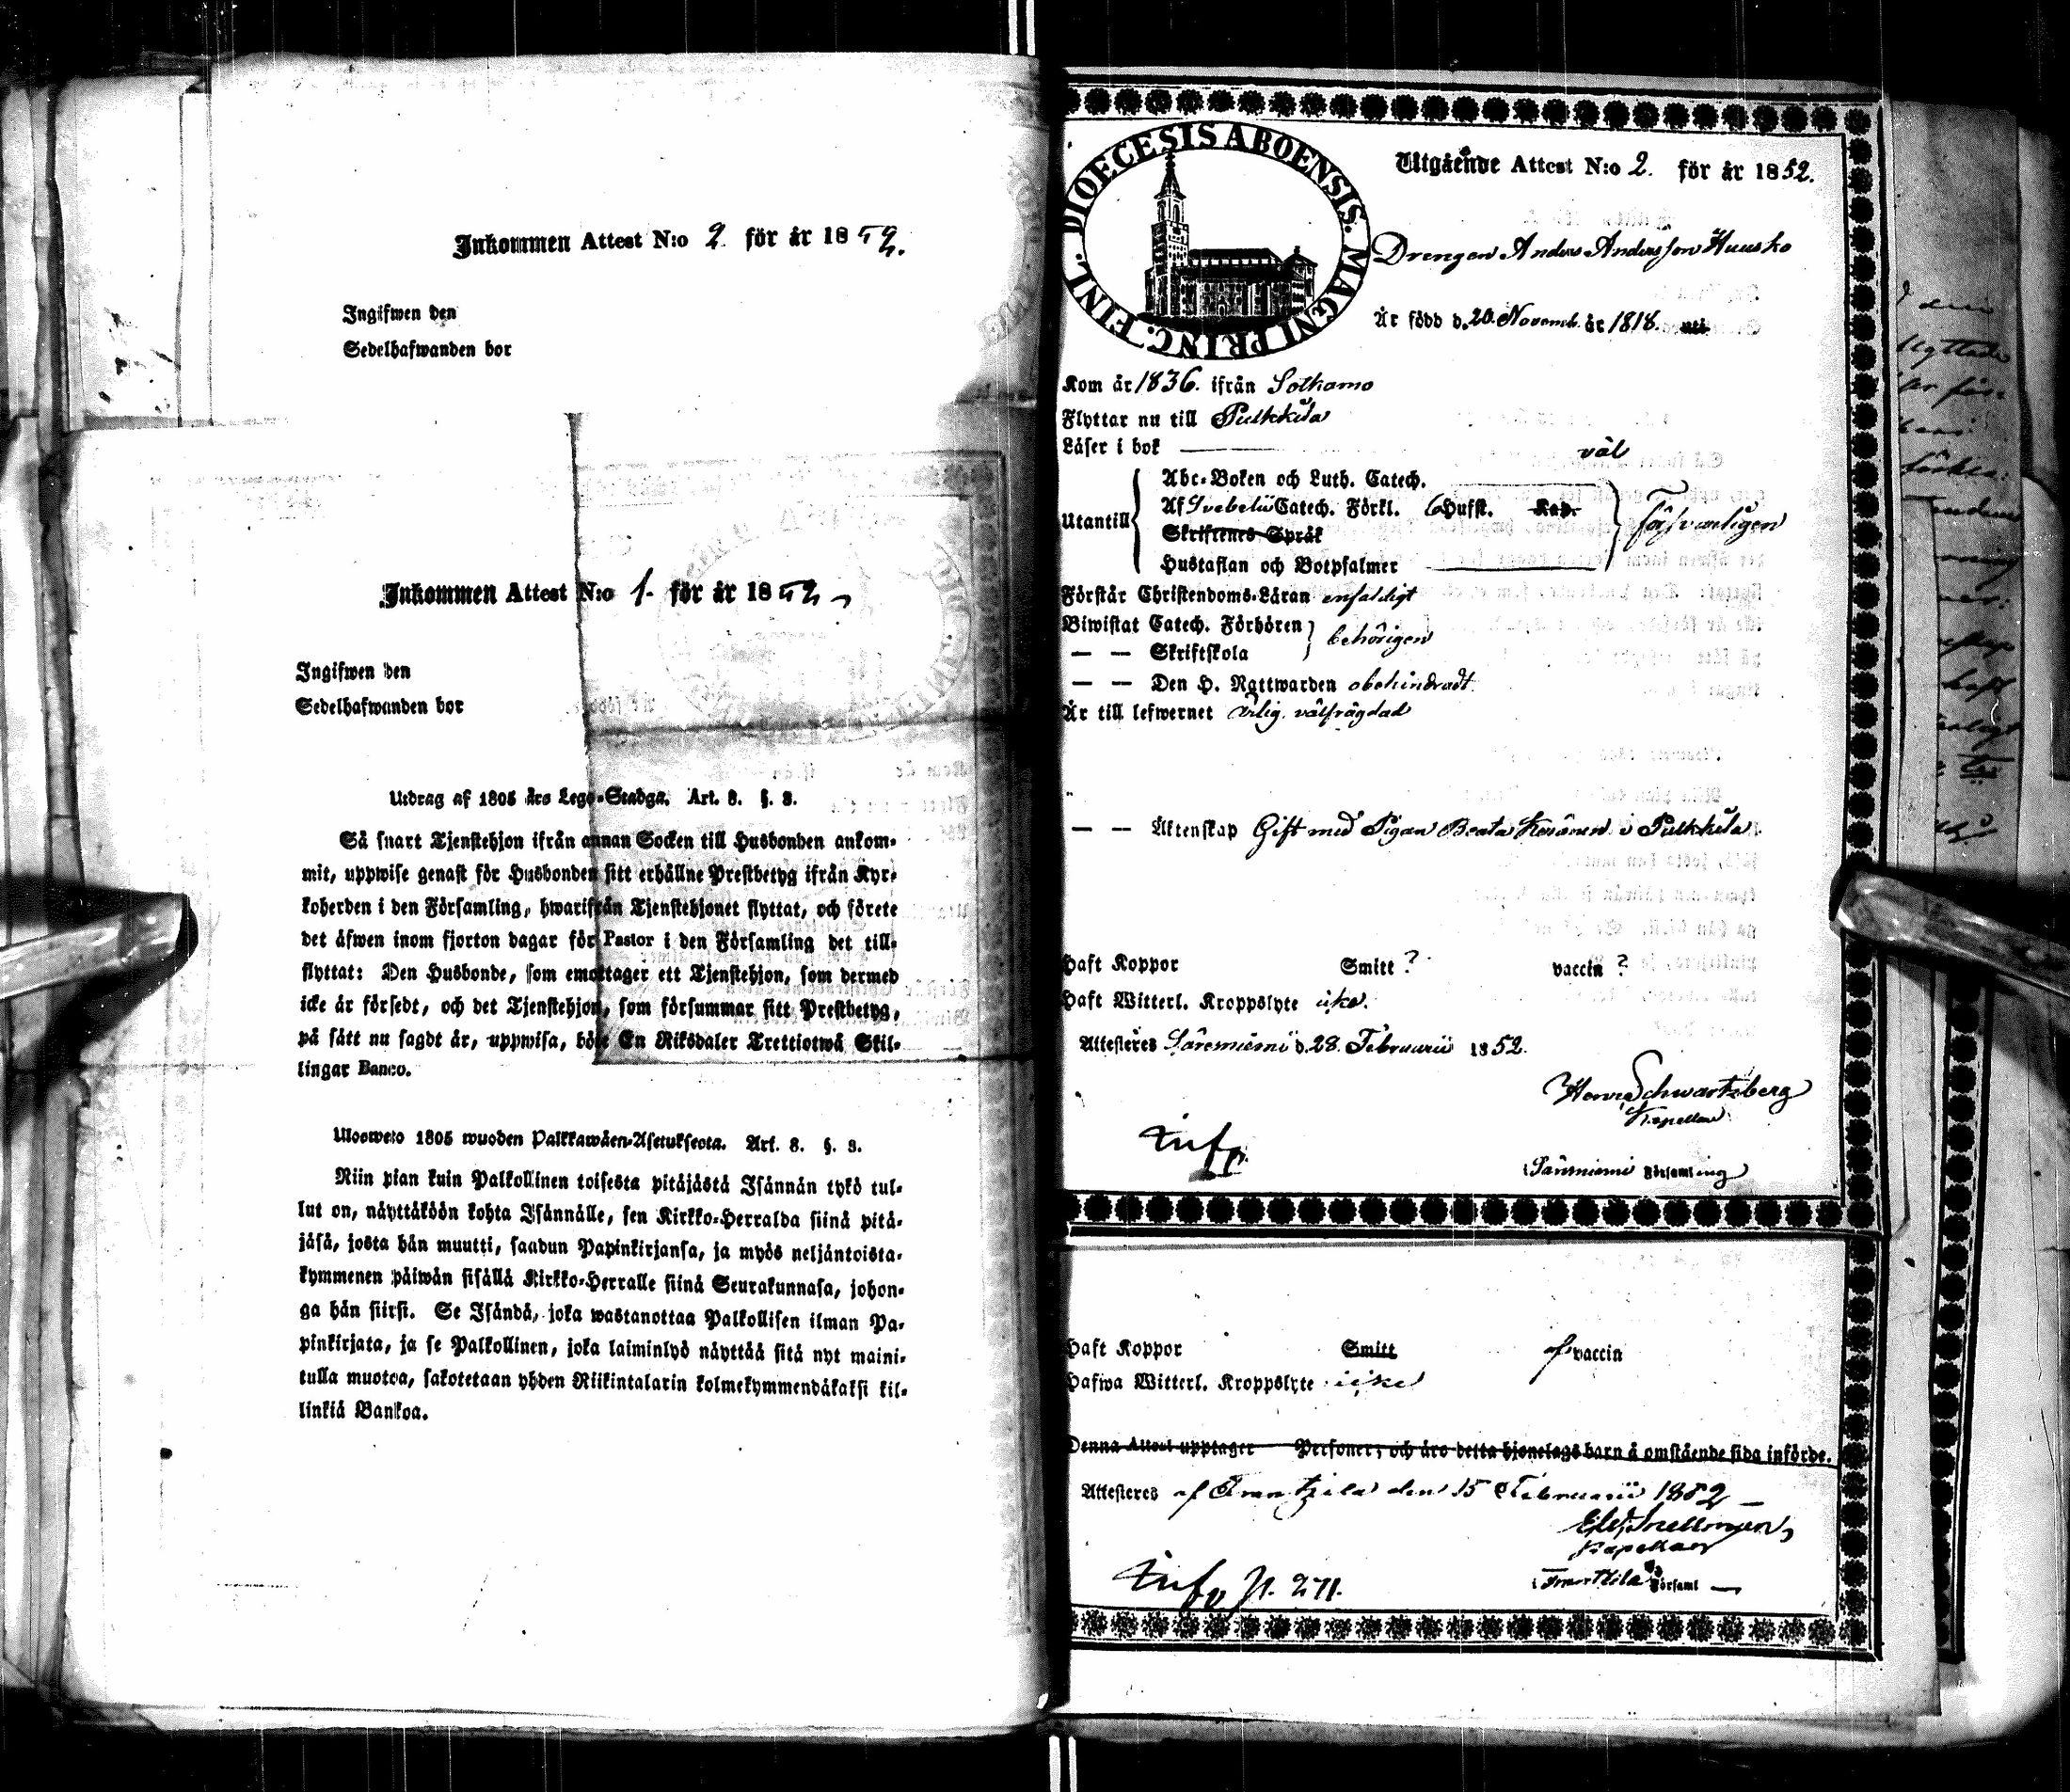 Inkommen Attest N:o 2 för år 1852.
Ingifwen den
Sedelhafwanden bor
Inkommen Attest N:o 1. för år 1852
Ingifwen den
Sedelhafwanden bor
Utdrag af 1805 års Lego-Stadga. Art. 8. §. 3.
Så snart Tjenstehjon ifrån annan Socken till Husbonden ankom-
mit, uppwise genast för Husbonden sitt erhållne Prestbetyg ifrån Kyr-
koherden i den Församling, hwarifrån Tjenstehjonet flyttat, och förete
det äfwen inom fjorton dagar för Pastor i den Församling det till-
flyttat: Den Husbonde, som emottager ett Tjenstehjon, som dermed
icke är försedt, och det Tjenstehjon, som försummar sitt Prestbetyg,
på sätt nu sagdt är, uppwisa, böte En Riksdaler Trettiotwå Skil-
lingar Banco.
Ulosweto 1805 wuoden Palkkawäen-Asetuksesta. Art. 8. §. 3.
Niin pian kuin Palkollinen toisesta pitäjästä Isännän tykö tul-
lut on, näyttäköön kohta Isännälle, sen Kirkko-Herralda siinä pitä-
jäsä, josta hän muutti, saadun Papinkirjansa, ja myös neljäntoista-
kymmenen päiwän sisällä Kirkko-Herralle siinä Seurakunnasa, johon-
ga hän siirsi. Se Isändä, joka wastanottaa Palkollisen ilman Pa-
pinkirjata, ja se Palkollinen, joka laiminlyö näyttää sitä nyt maini-
tulla muotoa, sakotetaan yhden Riikintalarin kolmekymmendäkaksi kil-
linkiä Bankoa.
DIOECESIS ABOENSIS. MAGNI PRINC. FINL.
Utgående Attest N:o 2. för år 1852.
Drengen Anders Andersson Huusko
Är född d. 20. Novemb. år 1818. uti
Kom år 1836. ifrån Sotkamo
Flyttar nu till Pulkkila
Läser i bok väl
Utantill
Abc-Boken och Luth. Catech.
Af Svebelii Catech. Förkl. 6 Hufst. Kap.
Skriftenes Språk
Hustaflan och Botpsalmer
försvarligen
Förstår Christendoms-Läran enfaldigt
Biwistat Catech. Förhören
— — Skriftskola
behörigen
— — Den H. Nattwarden obehindradt.
Är till lefwernet ärlig. välfrägdad
— — Äktenskap Gift med Pigan Beata Keränen i Pulkkila.
Haft Koppor Smitt ? vaccin ?
Haft Witterl. Kroppslyte icke.
Attesteres Säresniemi d. 28. Februarii 1852.
Henr. Schwartzberg
Kapellan
inf.
Säresniemi Församling
Haft Koppor Smitt af vaccin
Hafwa Witterl. Kroppslyte icke
Denna Attest upptager Personer; och äro detta hjonelags barn å omstående sida införde.
Attesteres af Frantzila den 15 Februarii 1852
Snellman,
Kapellan
Frantzila Församl
inf. p. 271.